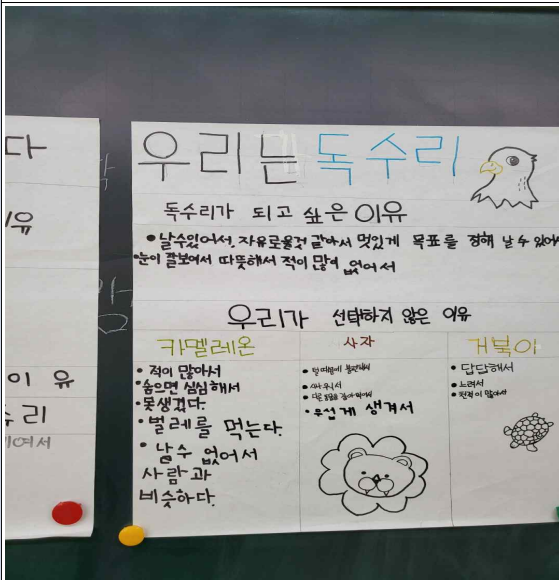 다
이유
이 유
수리
여서
우리는 독수리
독수리가 되고 싶은 이유
• 날수있어서, 자유로울것 같아서 멋있게 목표를 정해 날 수 있어서
• 눈이 잘보여서 따뜻해서 적이 많이 없어서
우리가 선택하지 않은 이유
카멜레온
• 적이 많아서
• 숨으면 심심해서
• 못생겼다.
• 벌레를 먹는다.
• 날수 없어서
사람과
비슷하다.
사자
• 털 때문에
• 사나워서
• 다른 동물을 잡아 먹어서
• 무섭게 생겨서
거북이
• 답답해서
• 느려서
• 천적이 많아서